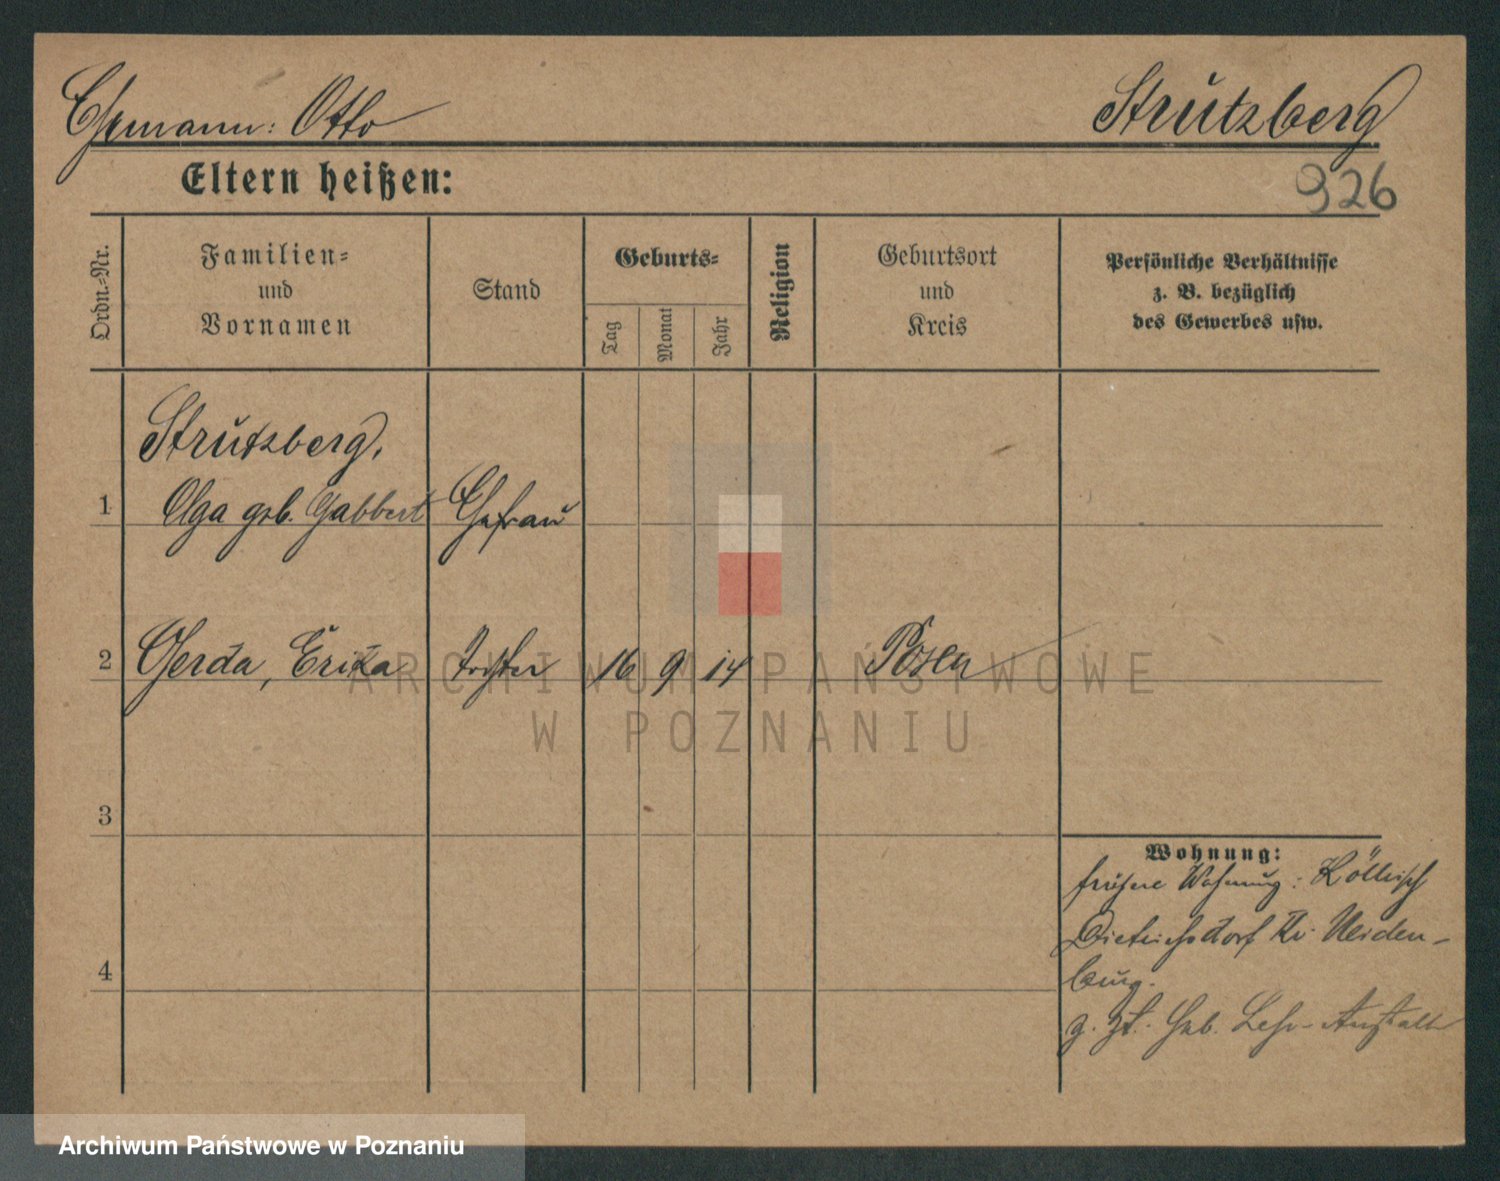 Ehemann: Otto
Strutzberg
Eltern heißen:
926
Ordn.-Nr.
Familien-
und
Vornamen
Stand
Geburts-
Tag
Monat
Jahr
Religion
Geburtsort
und
Kreis
Persönliche Verhältnisse
z. B. bezüglich
des Gewerbes usw.
Strutzberg,
1 Olga geb. Gabbert Ehefrau
2 Gerda, Erika Tochter 16 9 14 Posen
ARCHIWUM PAŃSTWOWE
W POZNANIU
3
Wohnung:
frühere Wohnung:
Dietrichsdorf Kr. Neiden-
burg.
4
z. Zt. Heb. Lehr-Anstalt
Archiwum Państwowe w Poznaniu